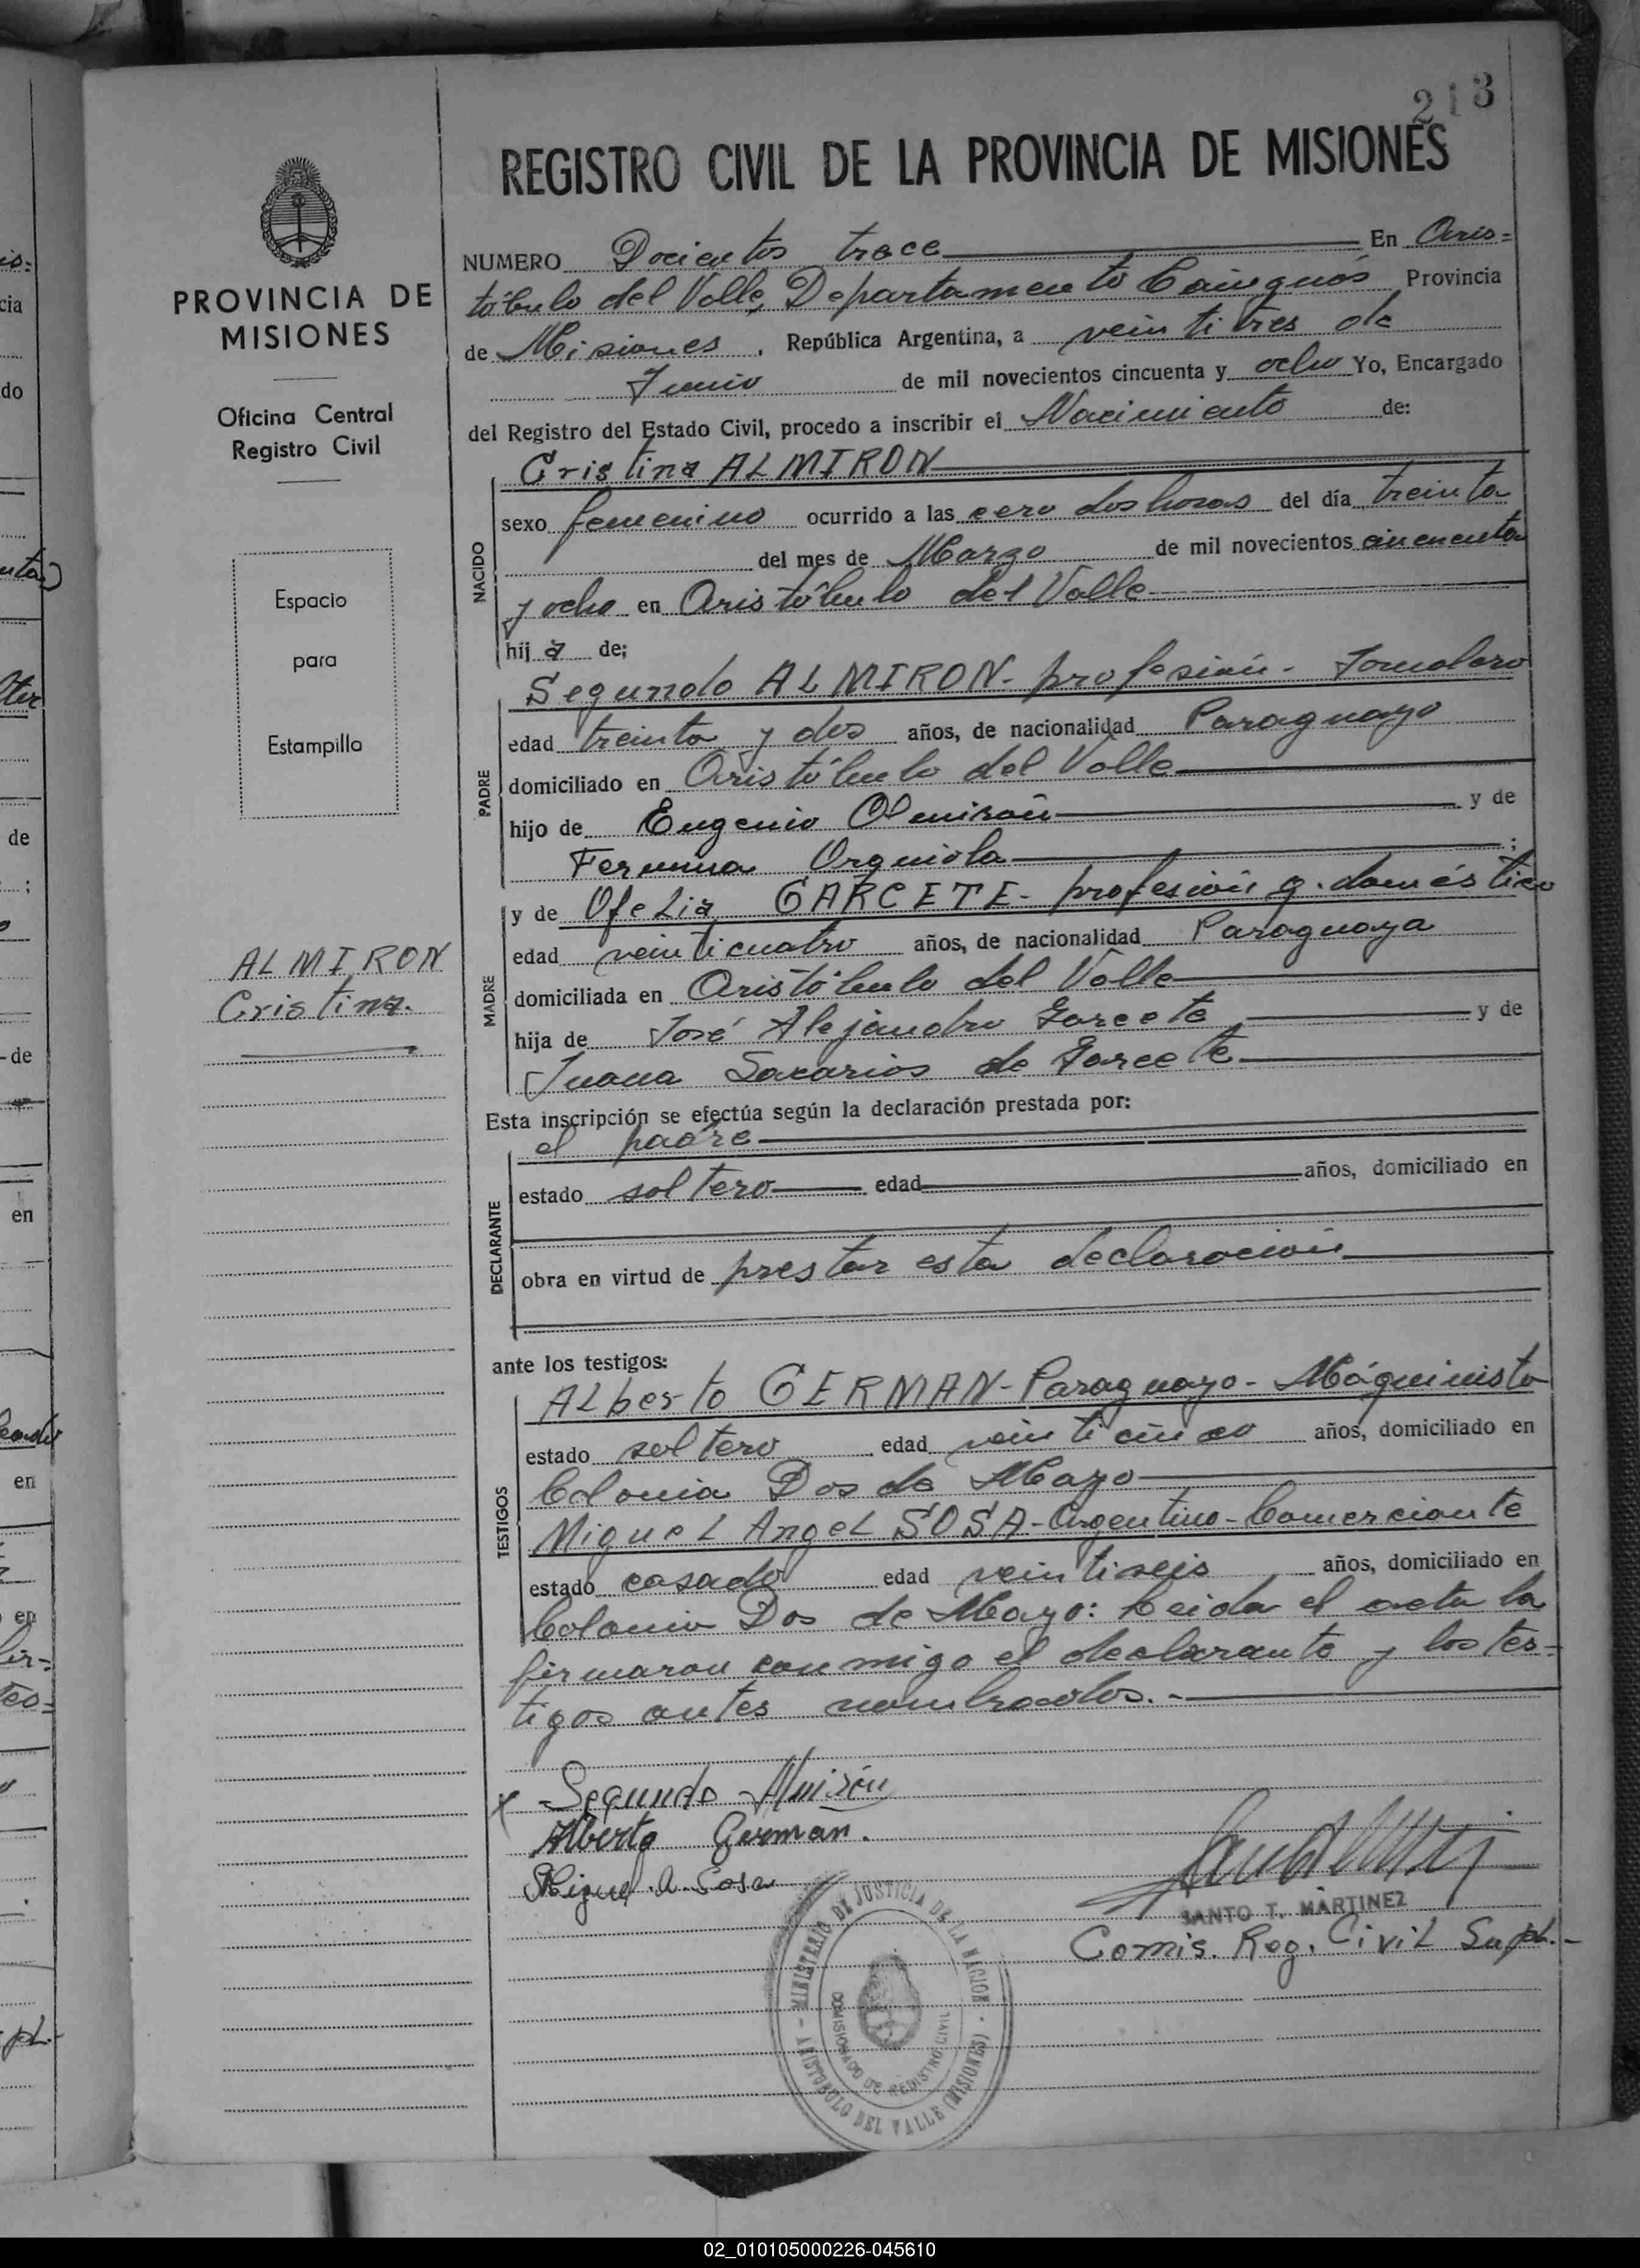 213
REGISTRO CIVIL DE LA PROVINCIA DE MISIONES
PROVINCIA DE
MISIONES
Oficina Central
Registro Civil
Espacio
para
Estampilla
ALMIRON
Cristina.
NUMERO Docientos trece En Aris=
tóbulo del Valle, Departamento Cainguás Provincia
de Misiones, República Argentina, a veintitres de
Junio de mil novecientos cincuenta y ocho Yo, Encargado
del Registro del Estado Civil, procedo a inscribir el Nacimiento de:
NACIDO
Cristina ALMIRON
sexo femenino ocurrido a las cero dos horas del día treinta
del mes de Marzo de mil novecientos cincuenta
y ocho en Aristóbulo del Valle
hij a de;
PADRE
Segundo ALMIRON- profesión- Jornalero
edad treinta y dos años, de nacionalidad Paraguayo
domiciliado en Aristóbulo del Valle
hijo de Eugenio Almirón y de
Fermina Orquiola ;
MADRE
y de Ofelia GARCETE- profesión q. doméstico
edad veinticuatro años, de nacionalidad Paraguaya
domiciliada en Aristóbulo del Valle
hija de José Alejandro Garcete y de
Juana Sacarías de Garcete
Esta inscripción se efectúa según la declaración prestada por:
DECLARANTE
el padre
estado soltero edad años, domiciliado en
obra en virtud de prestar esta declaración
ante los testigos:
TESTIGOS
Alberto GERMAN-Paraguayo-Máquinista
estado soltero edad veinticinco años, domiciliado en
Colonia Dos de Mayo
Miguel Angel SOSA-Argentino-Comerciante
estado casado edad veintiseis años, domiciliado en
Colonia Dos de Mayo: Leida el acta la
firmaron conmigo el declarante y los tes=
tigos antes nombrados.-
x Segundo Almirón
Alberto German.
Miguel A. Sosa
SANTO T. MARTINEZ
Comis. Reg. Civil Supl.-
MINISTERIO DE JUSTICIA DE LA NACION
COMISIONADO DE REGISTRO CIVIL
ARISTOBULO DEL VALLE (MISIONES)
02_010105000226-045610